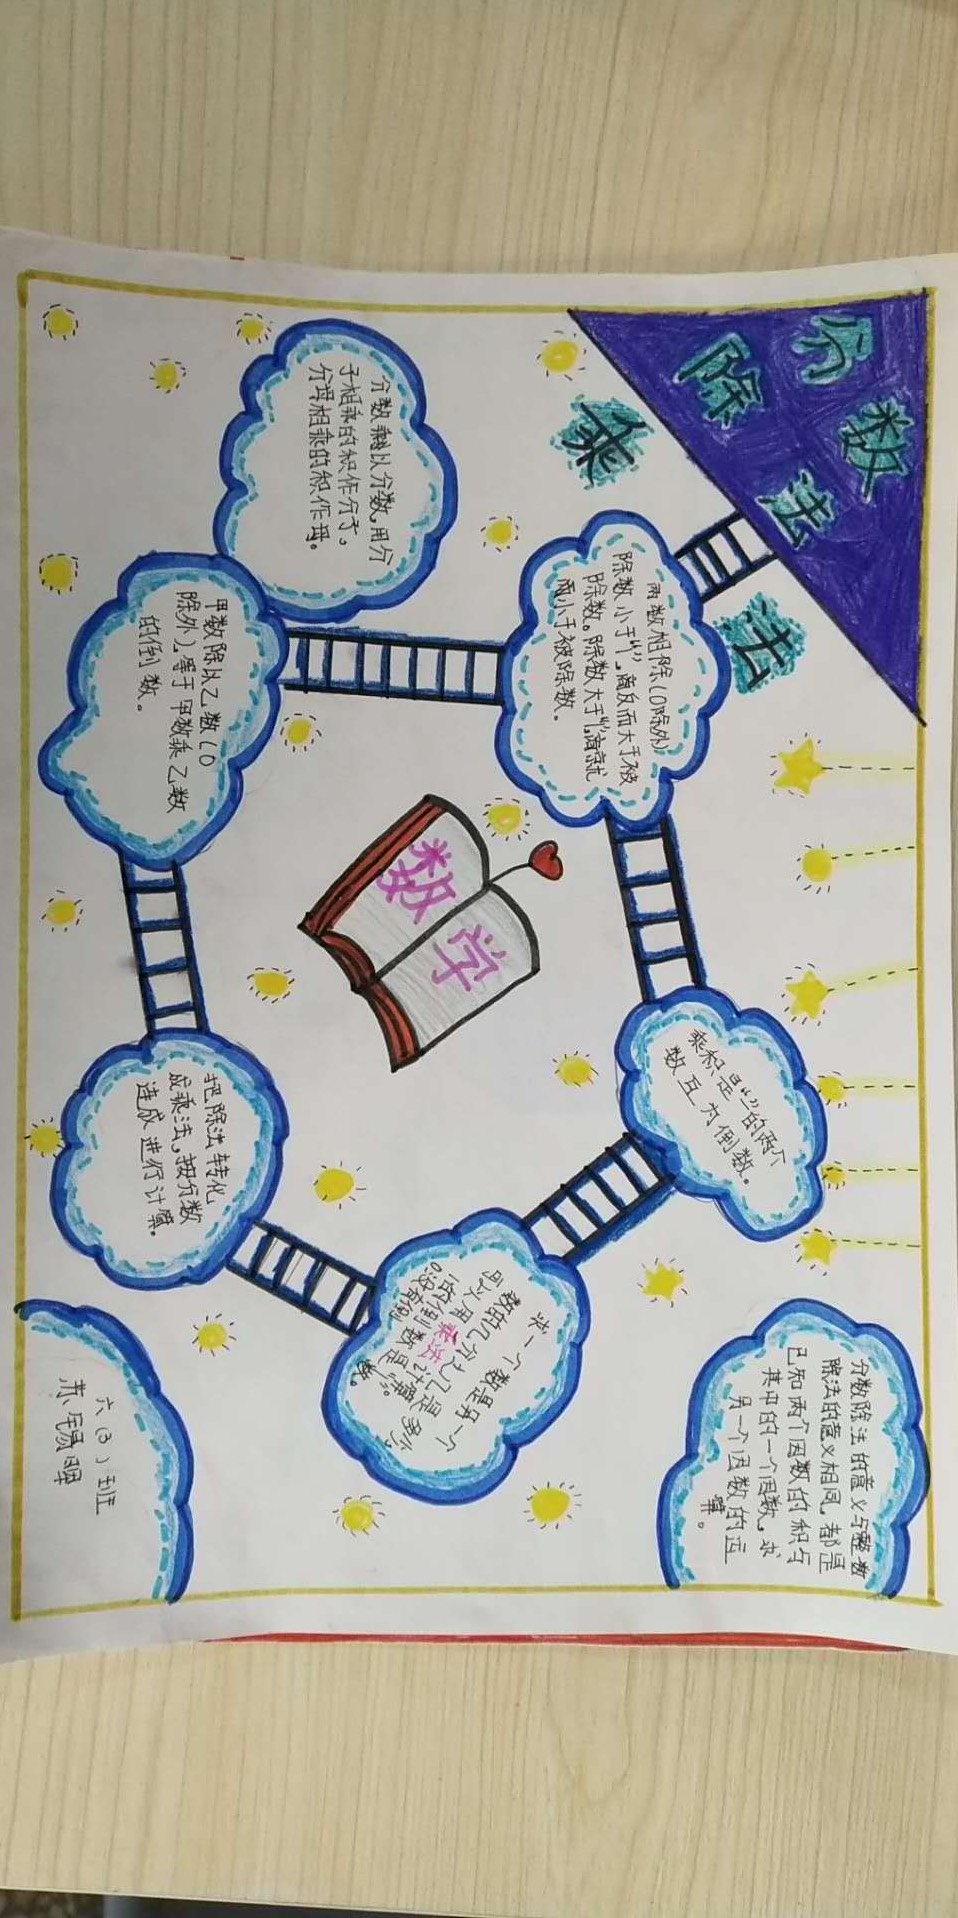 分数
除法
乘法
两数相除(0除外)
除数小于“1”,商反而大于被
除数。除数大于“1”,商就
小于被除数。
分数乘以分数,用分
子相乘的积作分子。
分母相乘的积作母。
甲数除以乙数(0
除外),等于甲数乘乙数
的倒数。
数学
乘积是“1”的两个
数互为倒数。
把除法转化
成乘法,按分数
连成进行计算。
求一个数是另一个
数的几分之几是多少。
可以用乘法计算。
没有倒
数。
分数除法的意义与整数
除法的意义相同,都是
已知两个因数的积与
其中的一个因数,求
另一个因数的运
算。
六(3)班